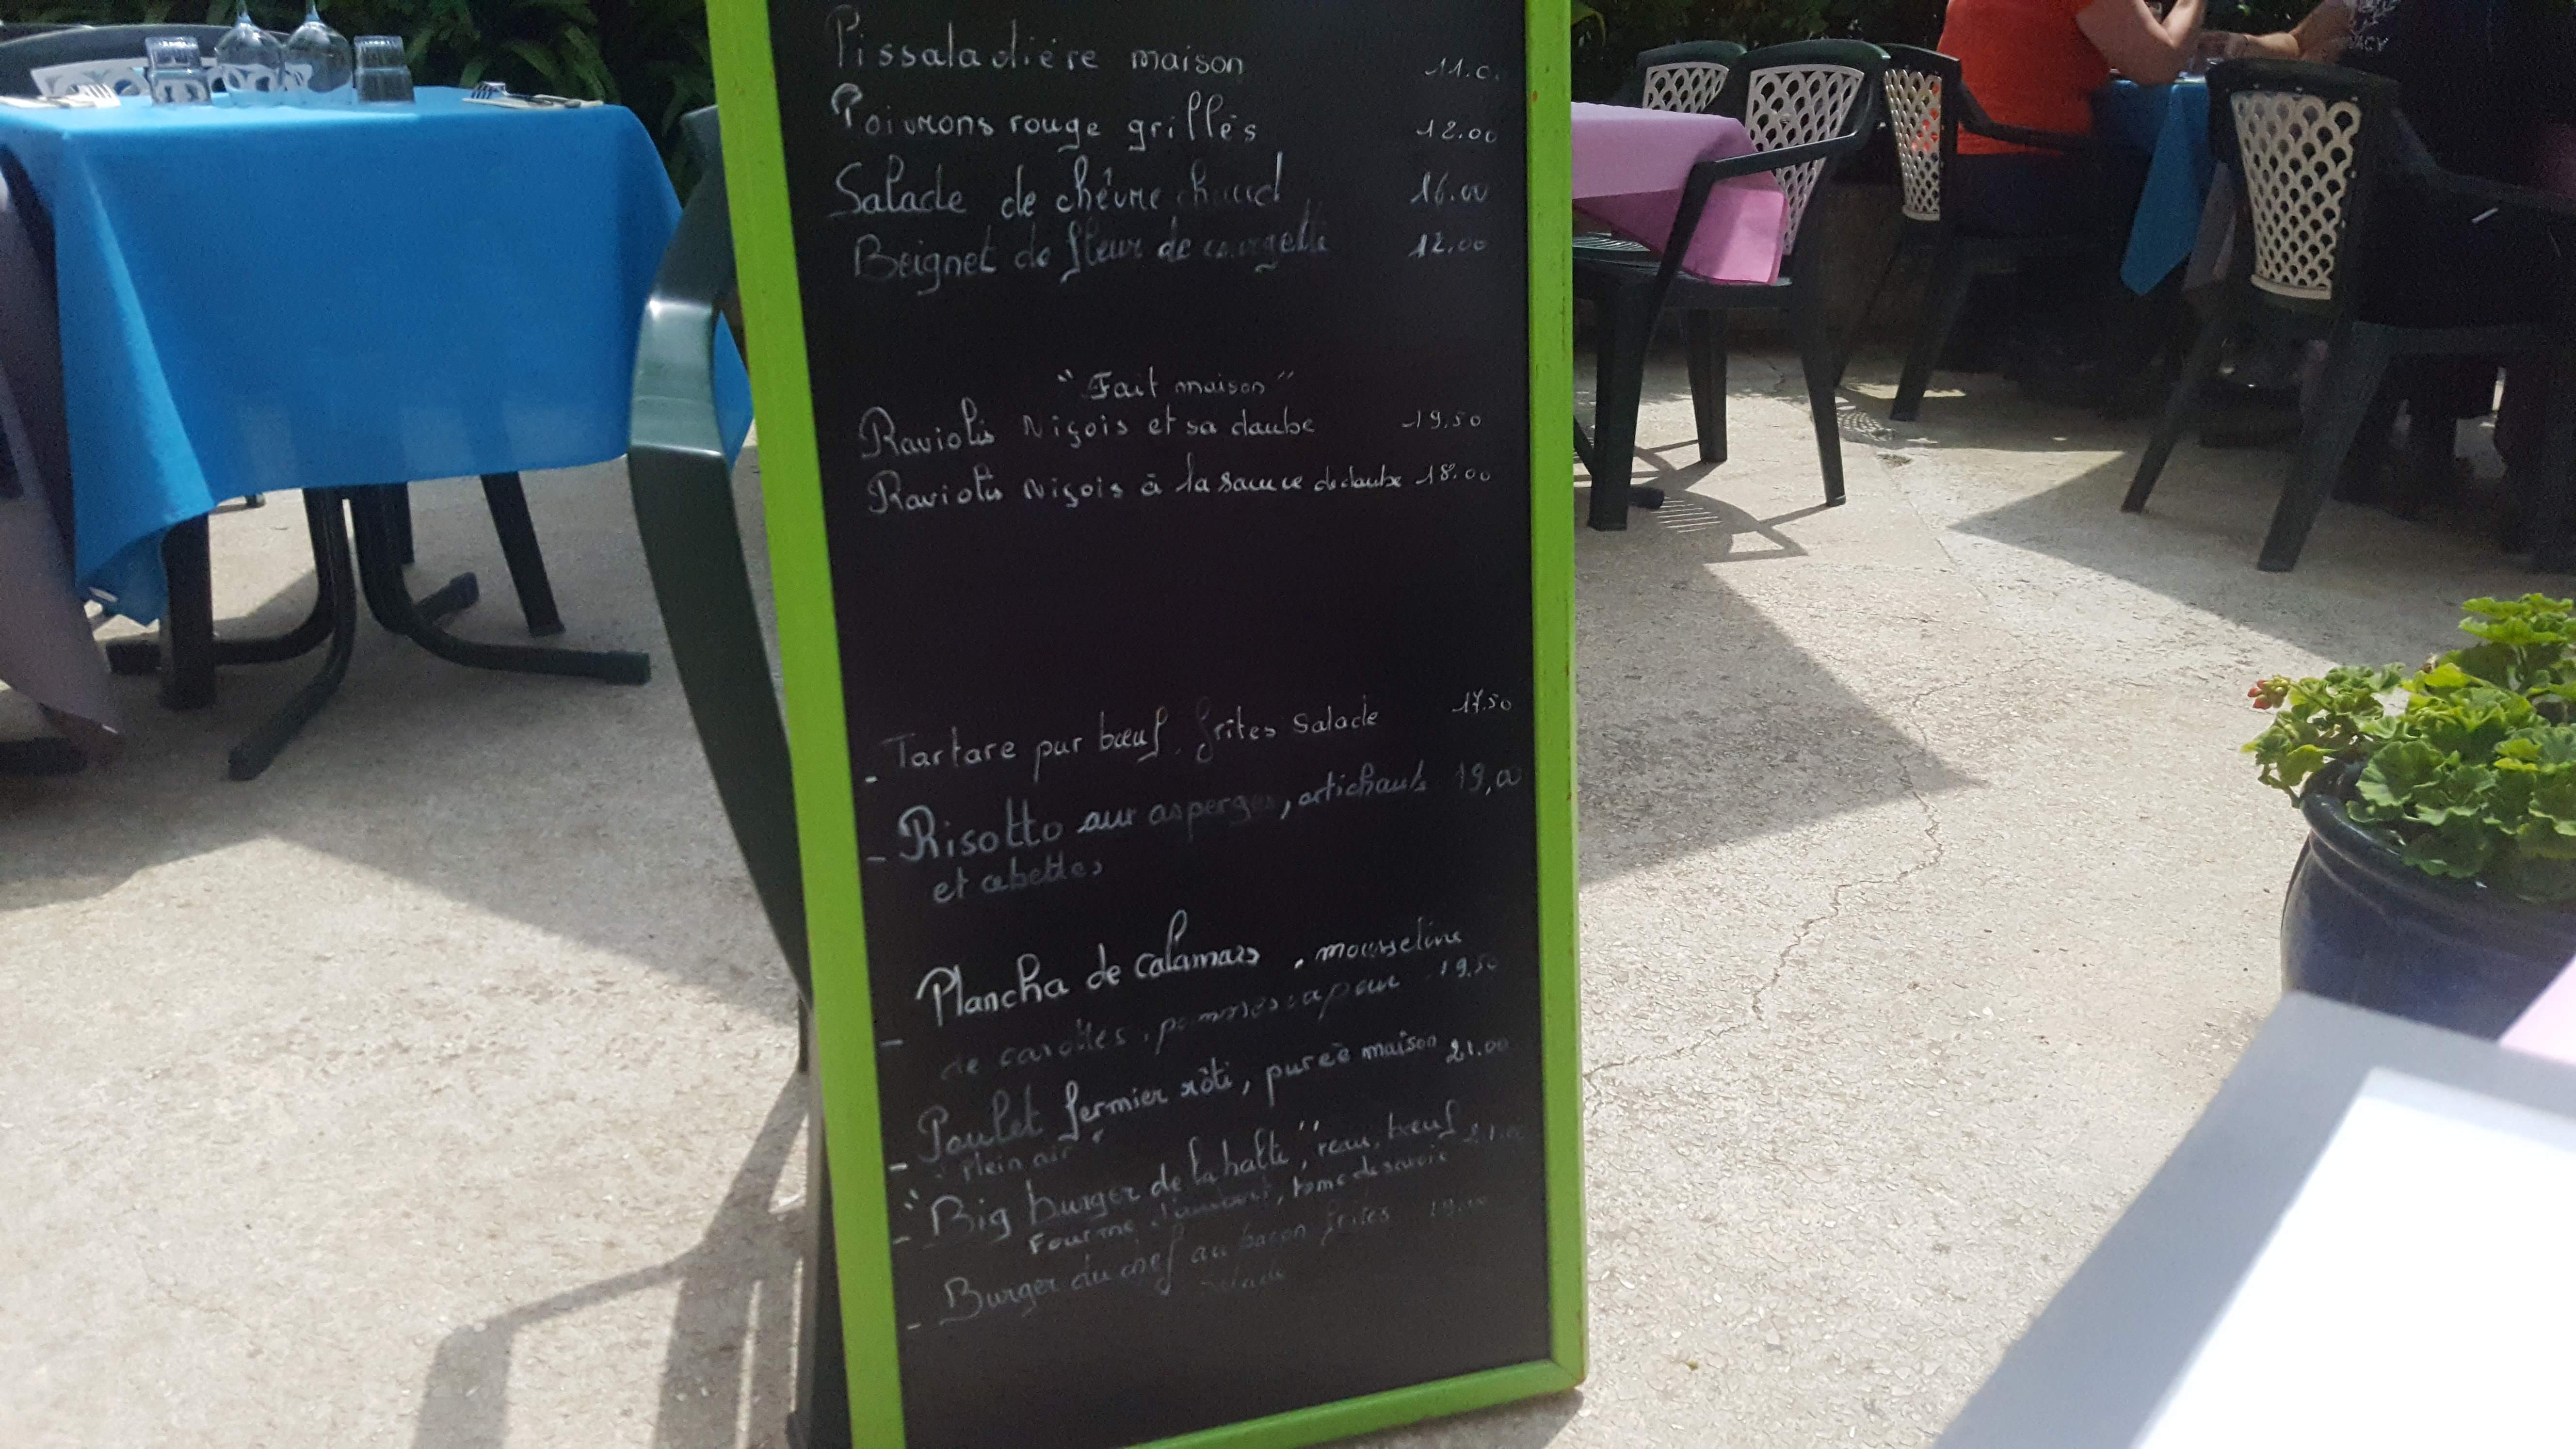 Pissaladière maison 11.0
Poivrons rouge grillés 12.00
Salade de chêvre chaud 16.00
Beignet de fleur de courgette 12.00
"Fait maison"
Raviolis Niçois et sa daube 19.50
Raviolis Niçois à la sauce de daube 18.00
- Tartare pur bœuf, frites salade 17.50
- Risotto aux asperges, artichauts 19,00
et cebettes
- Plancha de calamars, mousseline
de carottes, pommes vapeur 19.50
- Poulet fermier rôti, pureé maison 21.00
"Plein air"
- "Big burger de la halte", veau, bœuf 21.00
Fourme d'ambert, tome de savoie
- Burger du chef au bacon frites 19.00
salade